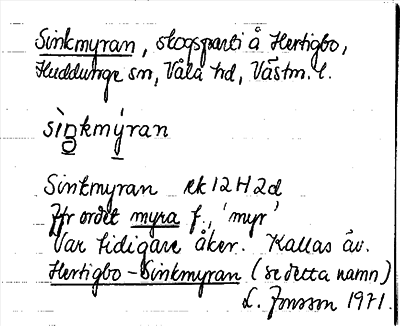 Sinkmyran, skogsparti å Hertigbo,
Huddunge sn, Våla hd, Västm. l.
sìŋkmy̌ran
Sinkmyran ek 12 H 2 d
Jfr ordet myra f., 'myr'
Var tidigare åker. Kallas äv.
Hertigbo-Sinkmyran (se detta namn)
L. Jonsson 1971.